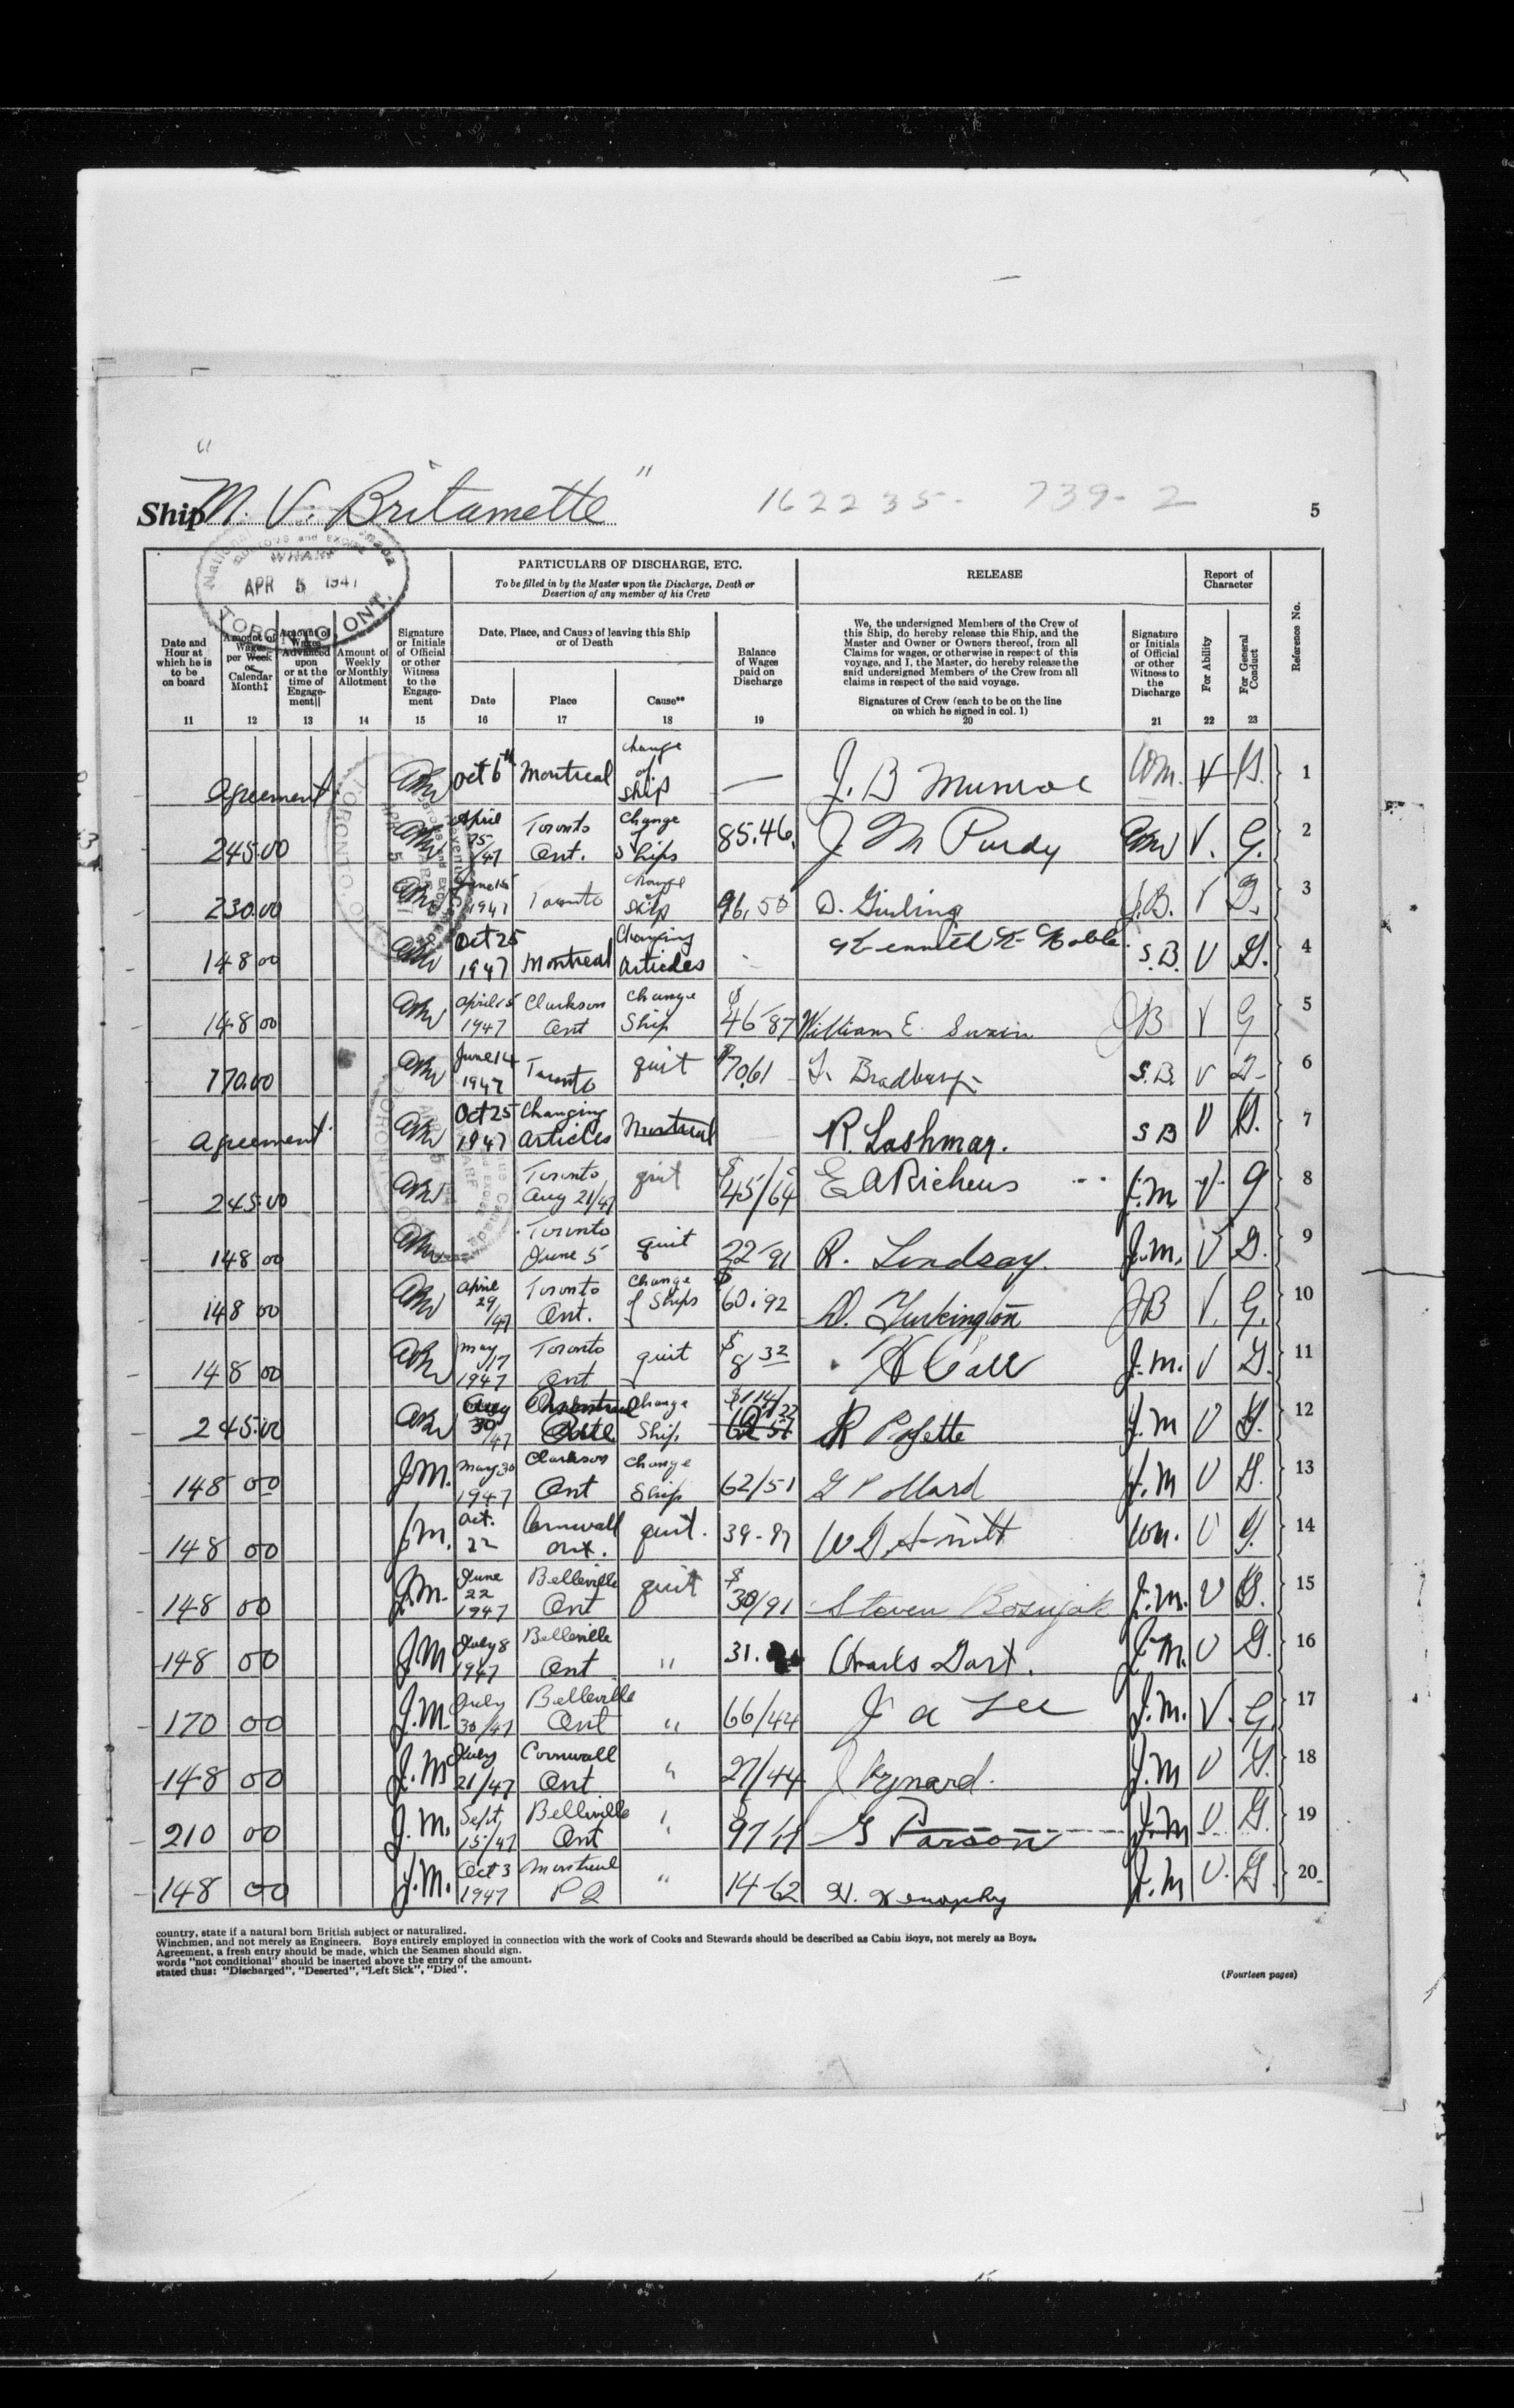 "M. V. Britamette"
Ship
162235- 739-2
5
National Revenue Canada
CUSTOMS and EXCISE
WHARF
APR 5 1947
TORONTO, ONT.
PARTICULARS OF DISCHARGE, ETC.
To be filled in by the Master upon the Discharge, Death or
Desertion of any member of his Crew
RELEASE
Report of
Character
Reference No.
Date and
Hour at
which he is
to be
on board
11
Amount of
Wages
per Week
or
Calendar
Month‡
12
Amount of
Wages
Advanced
upon
or at the
time of
Engage-
ment||
13
Amount of
Weekly
or Monthly
Allotment
14
Signature
or Initials
of Official
or other
Witness
to the
Engage-
ment
15
Date, Place, and Cause of leaving this Ship
or of Death
Date
16
Place
17
Cause**
18
Balance
of Wages
paid on
Discharge
19
We, the undersigned Members of the Crew of
this Ship, do hereby release this Ship, and the
Master and Owner or Owners thereof, from all
Claims for wages, or otherwise in respect of this
voyage, and I, the Master, do hereby release the
said undersigned Members of the Crew from all
claims in respect of the said voyage.
Signatures of Crew (each to be on the line
on which he signed in col. 1)
20
Signature
or Initials
of Official
or other
Witness to
the
Discharge
21
For Ability
22
For General
Conduct
23
Agreement Oct 6th Montreal change of ship — J. B Munroe V G. 1
245.00 April 25/47 Toronto Ont. Change of Ships 85.46. J M Purdy V. G. 2
230.00 June 15 1947 Toronto change of ship 96.50 D. Girling J.B. V G. 3
148 00 Oct 25 1947 Montreal Changing articles - Kenneth K. Noble S.B. V G. 4
148 00 April 15 1947 Clarkson Ont change Ship $46-87 William E. Swain JB V G 5
170.00 June 14 1947 Toronto quit $70.61 Bradbury S.B. V G- 6
Agreement Oct 25 1947 Changing articles Montreal R. Lashmar. S B V G. 7
245.00 Toronto Aug 21/47 quit $45/64 E A Richeus J.M. V G 8
148 00 Toronto June 5 quit 22-91 R. Lindsay. J.M. V G. 9
148 00 April 29/47 Toronto Ont. Change of Ships $60.92 D. Turkington JB V. G. 10
148 00 May 17 1947 Toronto Ont quit $8 32 J.M. V G. 11
245.00 Aug 30/47 Montreal change Ship. $114/22 R Pofette J.M V G. 12
148 00 J.M. May 30 1947 Clarkson Ont Change Ship 62/51 G Pollard J.M V G. 13
148 00 J.M. Oct. 22 Cornwall Ont. quit. 39-97 W D Smith V G. 14
148 00 J.M. June 22 1947 Belleville Ont quit $30/91 Steven Bosnjak J.M. V G. 15
148 00 J.M July 8 1947 Belleville Ont " 31. Charles Dart. J.M. V G. 16
170 00 J.M. July 30/47 Belleville Ont " 66/44 J a Lee J.M. V. G 17
148 00 J.M July 21/47 Cornwall Ont " 27/44 J Kynard. J.M V G. 18
210 00 J.M. Sept 15/47 Belleville Ont " G Parson J.M V. G. 19
148 00 J.M. Oct 3 1947 Montreal P Q " 14-62 J.M V. G. 20
country, state if a natural born British subject or naturalized.
Winchmen, and not merely as Engineers. Boys entirely employed in connection with the work of Cooks and Stewards should be described as Cabin Boys, not merely as Boys.
Agreement, a fresh entry should be made, which the Seamen should sign.
words "not conditional" should be inserted above the entry of the amount.
stated thus: "Discharged", "Deserted", "Left Sick", "Died".
(Fourteen pages)